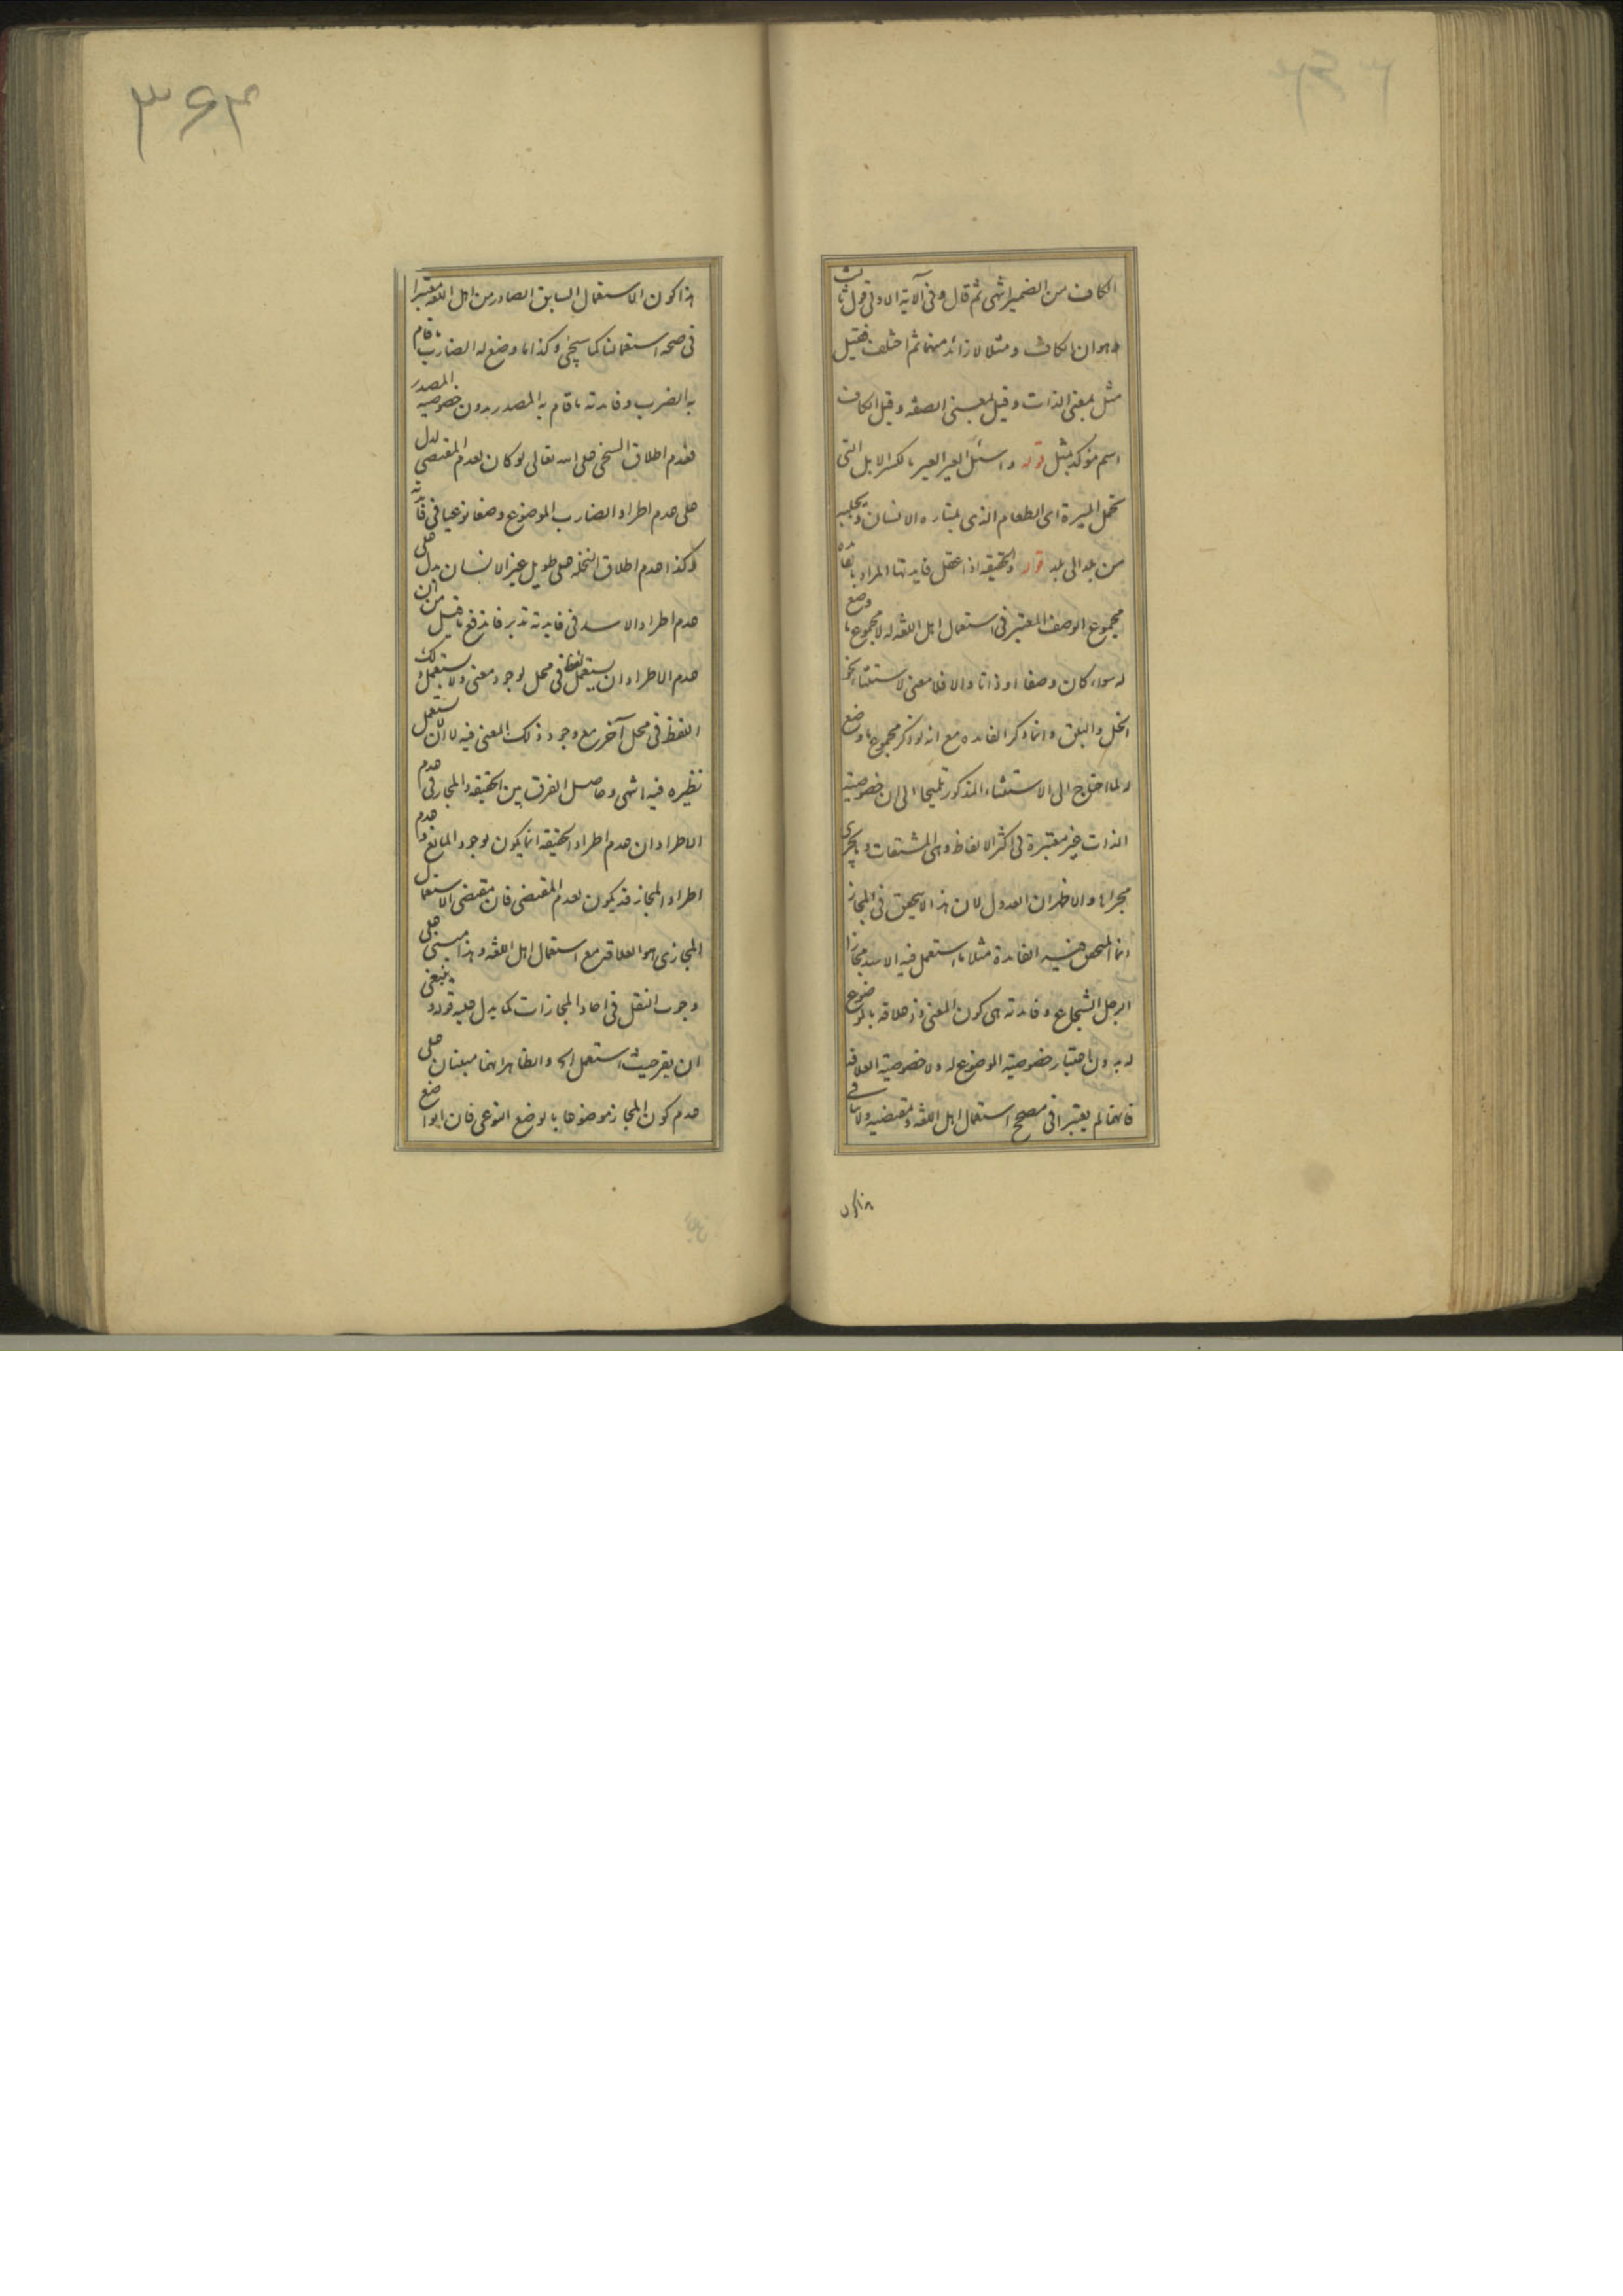 الكاف من الضمير انتهى ثم قال وفي الآية الاولى قول ثالث
وهو ان الكاف ومثلا لا زائد منهما ثم اختلف فقيل
مثل بمعنى الذات وقيل بمعنى الصفه وقيل الكاف
اسم مؤكد بمثل قوله واسئل العير العير بالكسر الابل التي
تحمل الميرة اى الطعام الذى يمتاره الانسان ويجلبه
من بلد الى بلد قوله والحقيقه اذا عقل فايدتها المراد بالفائدة
مجموع الوصف المعتبر في استعمال اهل اللغه له لا مجموع ما وضع
له سواء كان وصفا او ذاتا والا فلا معنى لاستثناء نحو
النخل والبلق وانما ذكر الفايده مع انه لو ذكر مجموع ما وضع
له لما احتاج الى الاستثناء المذكور تلميحا الى ان خصوصية
الذات غير معتبرة في اكثر الالفاظ وهى المشتقات وما يجرى
مجراها والاظهر ان العدول لان هذا لا يتحقق في المجاز
انما المتحقق فيه الفايدة مثلا ما استعمل فيه الاسد مجازا
الرجل الشجاع وفايدته هى كون المعنى ذو علاقه بالموضوع
له بدون اعتبار خصوصية الموضوع له ولا خصوصية العلاقه
فانهما لم يعتبرا في مصحح استعمال اهل اللغه ومقتضيه ولا ينافى
هذا كون
۳۶۴
هذا كون الاستعمال السابق الصادر من اهل اللغه معتبرا
في صحه استعمالنا كما سيجئ وكذا ما وضع له الضارب ما قام
به الضرب وفايدته ما قام به المصدر بدون خصوصيه المصدر
فعدم اطلاق السخى على الله تعالى لو كان لعدم المقتضى لدل
على عدم اطراد الضارب الموضوع وضعا نوعيا في فايدته
وكذا عدم اطلاق النخله على طويل غير الانسان يدل على
عدم اطراد الاسد في فايدته تدبر فاندفع ما قيل من ان
عدم الاطراد ان يستعمل لفظ في محل لوجود معنى ولا يستعمل ذلك
اللفظ في محل آخر مع وجود ذلك المعنى فيه لا ان لا يستعمل
نظيره فيه انتهى وحاصل الفرق بين الحقيقه والمجاز في عدم
الاطراد ان عدم اطراد الحقيقه انما يكون لوجود المانع وعدم
اطراد المجاز قد يكون لعدم المقتضى فان مقتضى الاستعمال
المجازى هو العلاقه مع استعمال اهل اللغه وهذا مبنى على
وجوب النقل في احاد المجازات كما يدل عليه قوله وينبغى
ان يقر حيث استعمل الخ والظاهر انهما مبنيان على
عدم كون المجاز موضوعا بالوضع النوعى فان الواضع